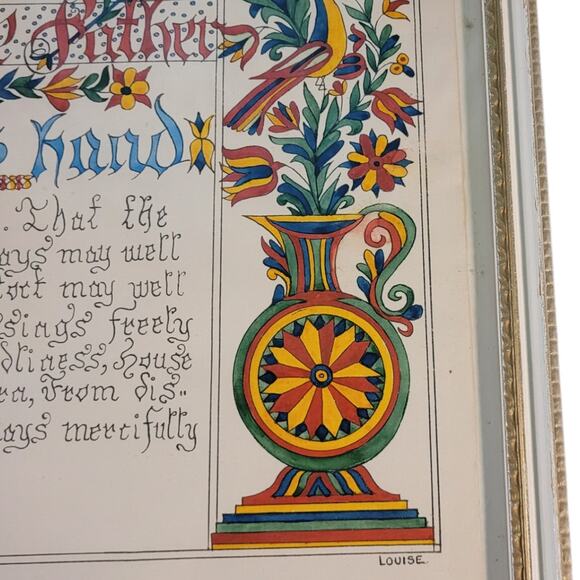 Father
hand
. That the
ays may well
tock may well
sings freely
dliness, house
ra, From dis-
ays mercifully
LOUISE
LOUISE.